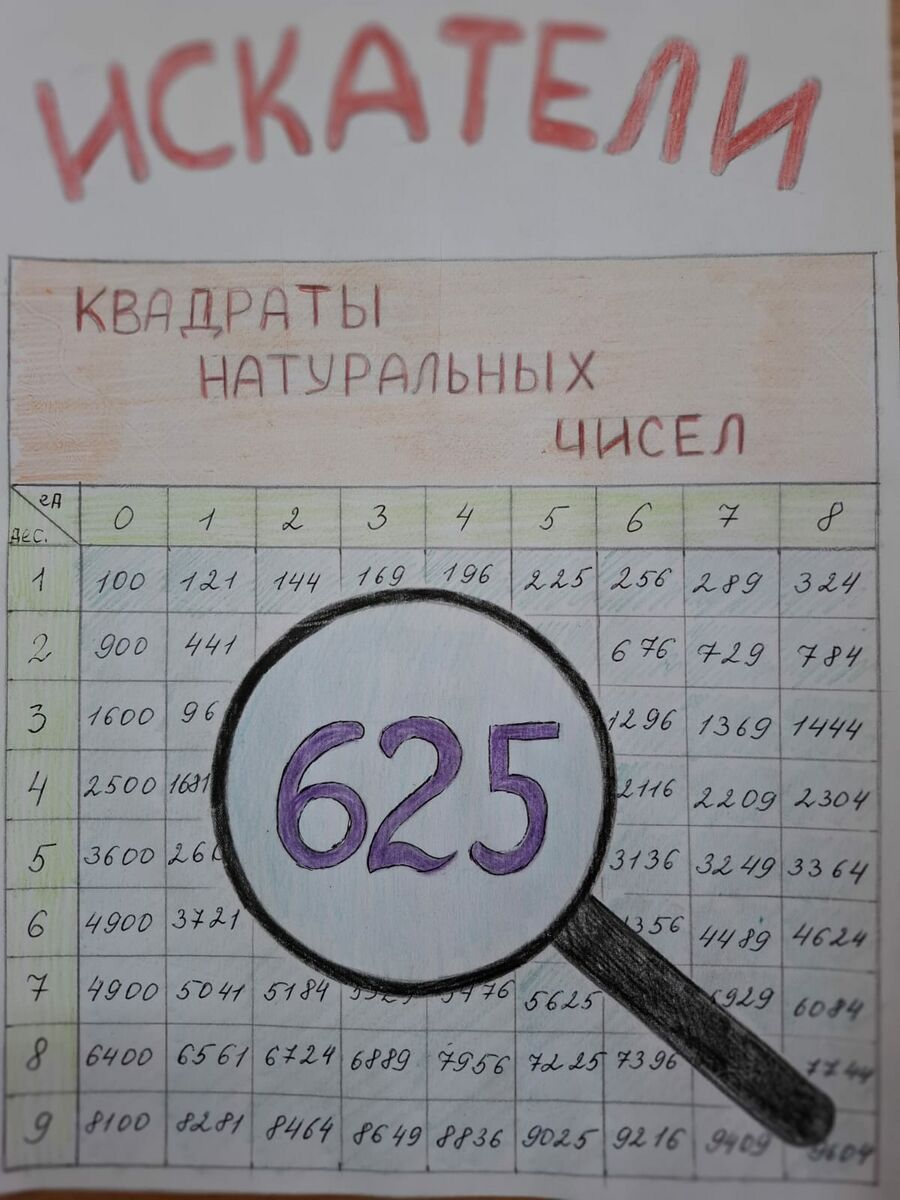 ИСКАТЕЛИ
КВАДРАТЫ
НАТУРАЛЬНЫХ
ЧИСЕЛ
ед
дес. 0 1 2 3 4 5 6 7 8
1 100 121 144 169 196 225 256 289 324
2 900 441 676 729 784
3 1600 96 1296 1369 1444
625
4 2500 1681 2116 2209 2304
5 3600 3136 3249 3364
6 4900 3721 356 4489 4624
7 4900 5041 5184 5625 5929 6084
8 6400 6561 6724 6889 7956 7225 7396 7744
9 8100 8281 8464 8649 8836 9025 9216 9409 9604